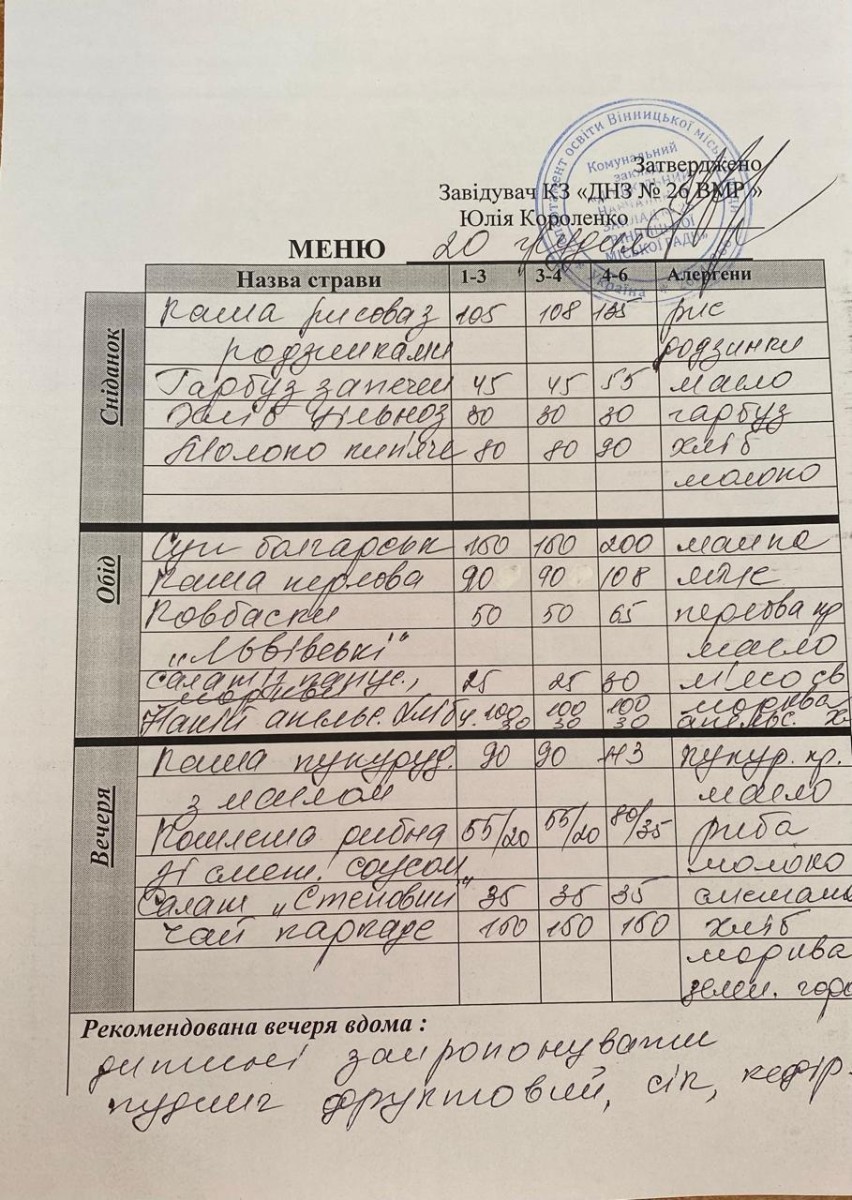 Департамент освіти Вінницької міської ради
Комунальний
Затверджено
Завідувач КЗ «ДНЗ № 26 ВМР »
Юлія Короленко
МІСЬКОЇ РАДИ»
Україна
МЕНЮ 20 грудня
Назва страви 1-3 3-4 4-6 Алергени
Сніданок
Каша рисова з 105 108 135 рис
родзинками родзинки
Гарбуз запечен 45 45 55 масло
Хліб цільноз 30 30 30 гарбуз
Молоко кип'яче 80 80 90 хліб
молоко
Обід
Суп болгарськ 150 150 200 манка
Каша перлова 90 90 108 яйце
Ковбаски 50 50 65 перлова кр
"Львівські" масло
Салат з капус., 25 25 30 м'ясо св
морквы морква
Напій апельс. Хліб ч. 100 100 100 апельс. х
30 30 30
Вечеря
Каша кукуруд. 90 90 113 кукур. кр.
з маслом масло
Котлета рибна 55/20 55/20 80/35 риба
зі смет. соусом молоко
Салат "Степовий" 35 35 35 сметана
Чай каркаде 150 150 150 хліб
морква
зелен. горо
Рекомендована вечеря вдома :
дитині запропонувати
пудинг фруктовий, сік, кефір.